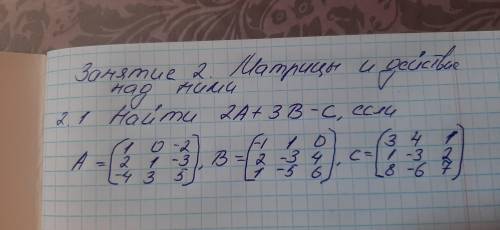 Занятие 2. Матрицы и действие
над ними
2.1 Найти 2A+3B-C, если
A = (1 0 -2; 2 1 -3; -4 3 5), B = (-1 1 0; 2 -3 4; 1 -5 6), C = (3 4 1; 1 -3 2; 8 -6 7)